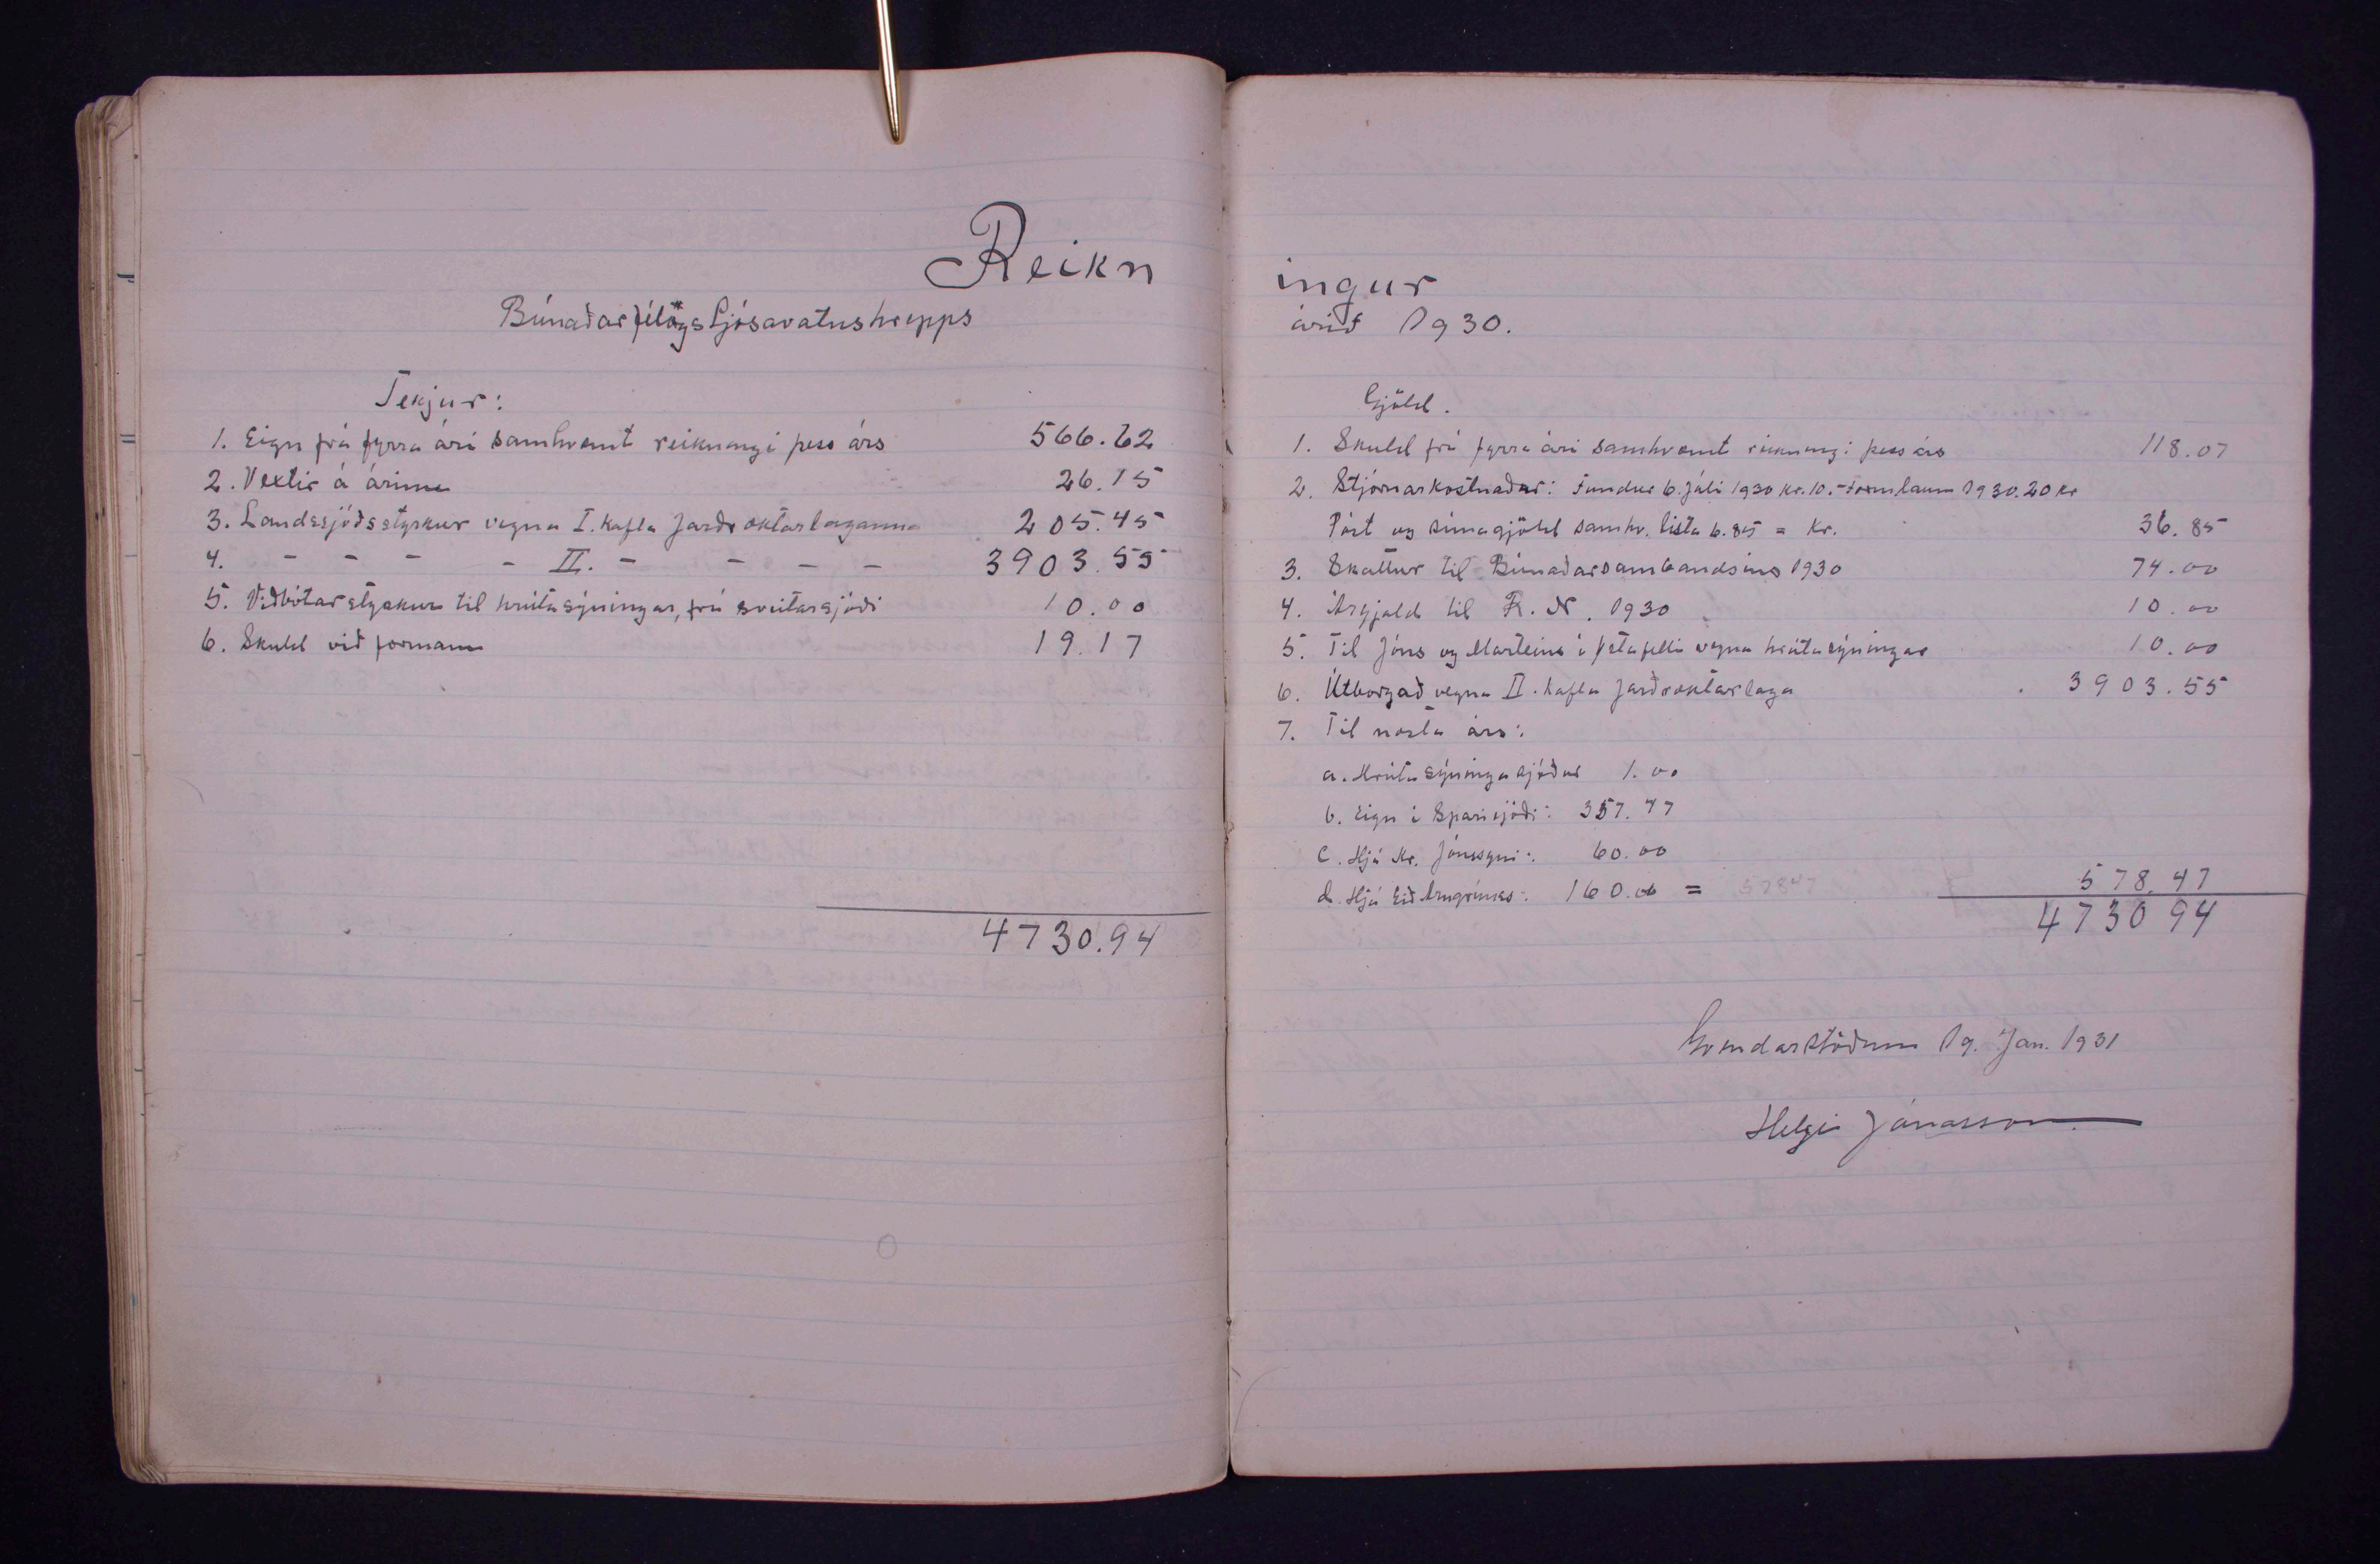 Reikningur
Búnaðarfélags Ljósavatnshrepps árið 1930.
Tekjur:
1. Eign frá fyrra ári samkvæmt reikningi þess árs 566.62
2. Vextir á árinu 26.15
3. Landssjóðsstyrkur vegna I. kafla Jarðræktarlaganna 205.45
4. - - - - II. - - - - 3903.55
5. Viðbótarstyrkur til hrútasýningar, frá sveitarsjóði 10.00
6. Skuld við formann 19.17
4730.94
Gjöld.
1. Skuld frá fyrra ári samkvæmt reikningi þess árs 118.07
2. Stjórnarkostnaður: Fundur 6. júli 1930 kr. 10.- Formlaun 1930. 20 kr
Póst og símagjöld samkv. lista 6.85 = Kr. 36.85
3. Skattur til Búnaðarsambandsins 1930 74.00
4. Árgjald til R. N. 1930 10.00
5. Til Jóns og Marteins í Ystafelli vegna hrútasýningar 10.00
6. Útborgað vegna II. kafla Jarðræktarlaga 3903.55
7. Til næsta árs:
a. Hrútasýningasjóður 1.00
b. Eign í Sparisjóði: 357.47
c. Hjá Kr. Jónssyni: 60.00
d. Hjá Eið Arngríms: 160.00 = 57847 578.47
4730 94
Gvendarstöðum 19. Jan. 1931
Helgi Jónasson